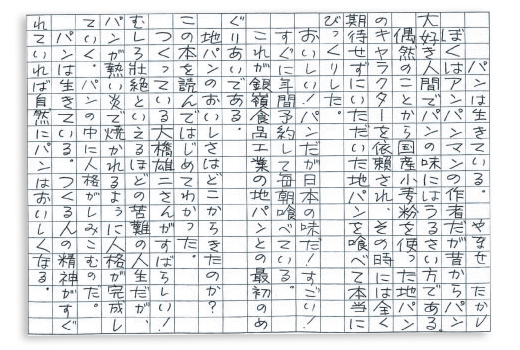 パンは生きている。 やなせ たかし
ぼくはアンパンマンの作者だが昔からパン
大好き人間でパンの味にはうるさい方である。
偶然のことから国産小麦粉を使った地パン
のキャラクターを依頼され、その時には全く
期待せずにいただいた地パンを喰べて本当に
びっくりした。
おいしい!パンだが日本の味だ!すごい!
すぐに年間予約して毎朝喰べている。
これが銀嶺食品工業の地パンとの最初のめ
ぐりあいである。
地パンのおいしさはどこからきたのか?
この本を読んではじめてわかった。
つくっている大橋雄二さんがすばらしい!
むしろ壮絶といえるほどの苦難の人生だが、
パンが熱い炎で焼かれるように人格が完成し
ていく。パンの中に人格がしみこむのだ。
パンは生きている。つくる人の精神がすぐ
れていれば自然にパンはおいしくなる。